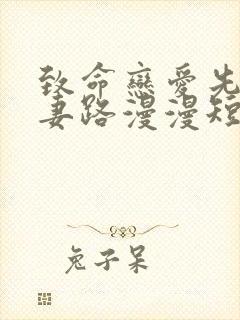 致命戀愛先
妻路漫漫短
兔子呆